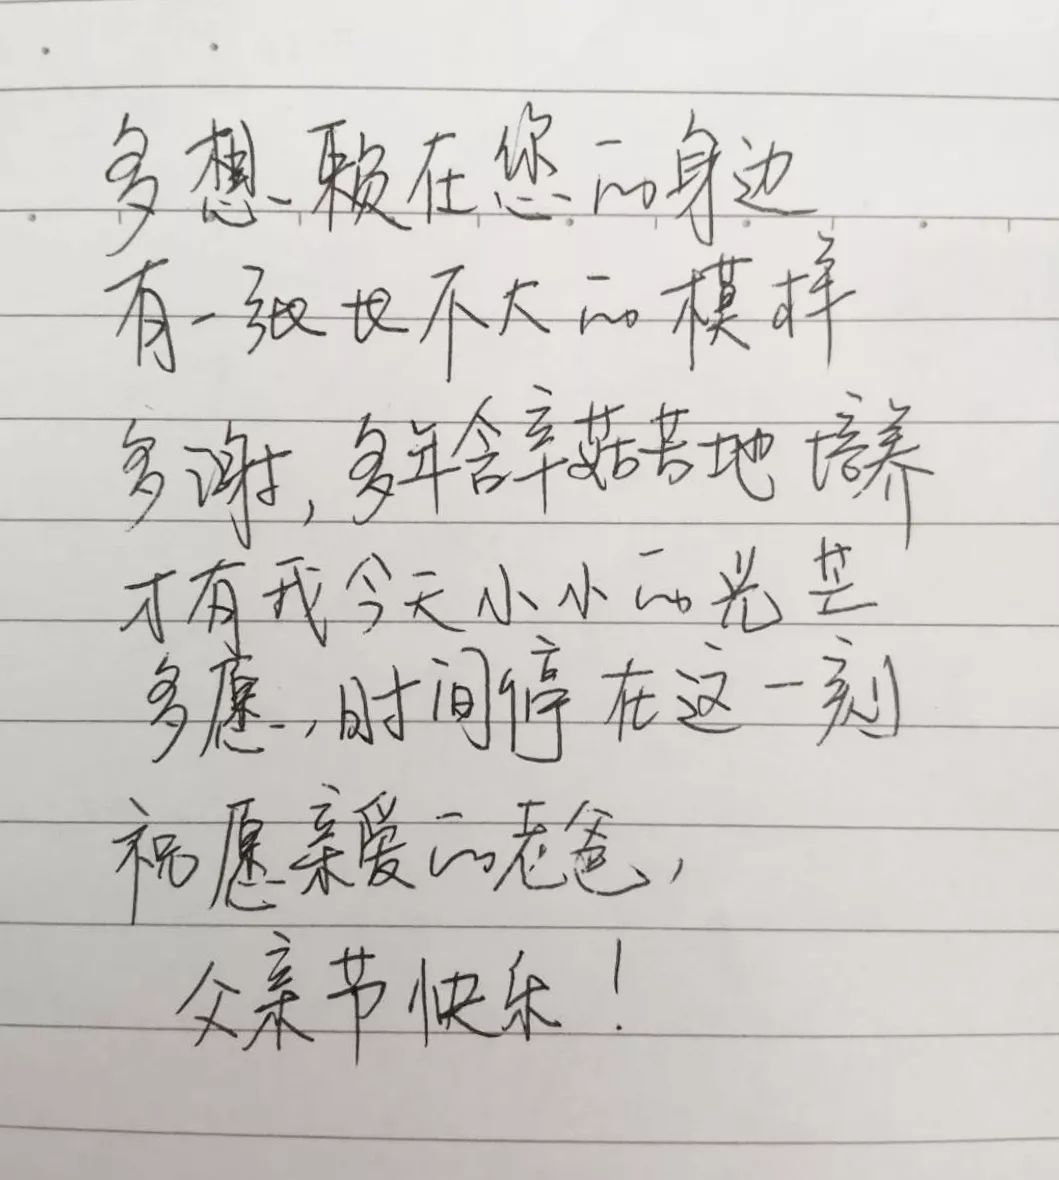 多想赖在您的身边
有一张长不大的模样
多谢,多年含辛菇苦地培养
才有我今天小小的光芒
多愿,时间停在这一刻
祝愿亲爱的老爸,
父亲节快乐!